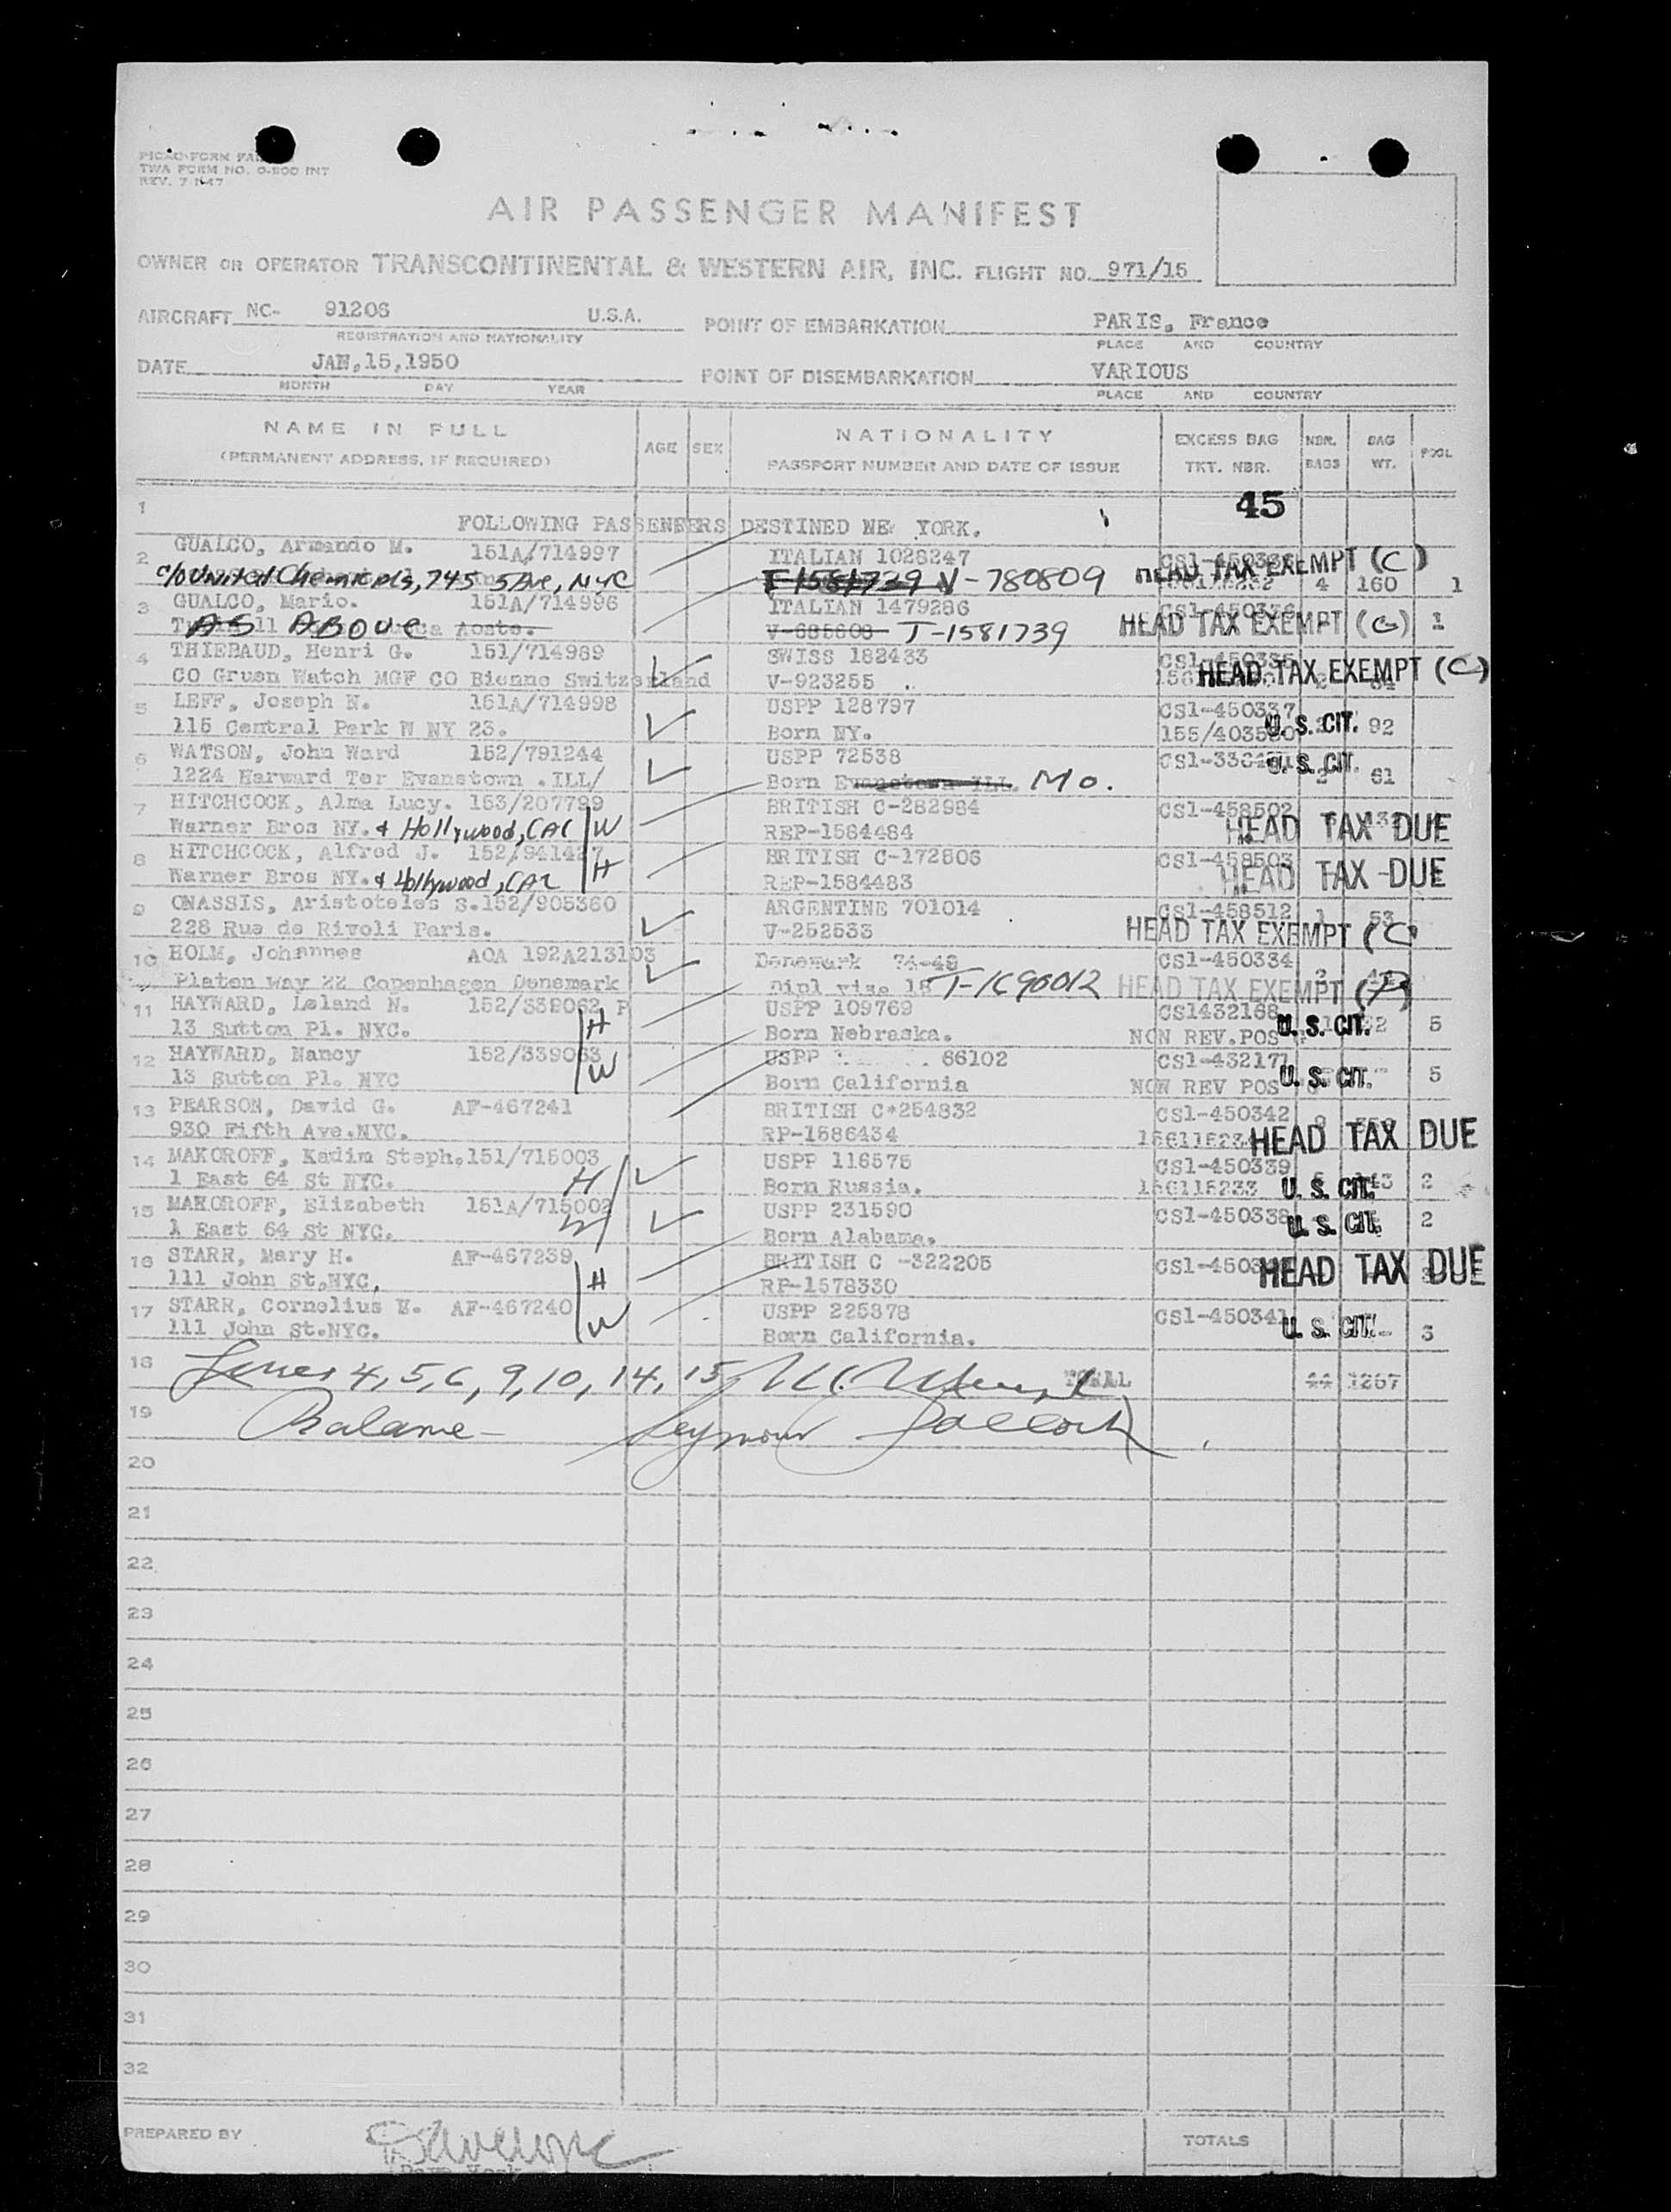 PICAO FORM
TWA FORM NO. 0-800 INT
REV. 7-1-47
AIR PASSENGER MANIFEST
OWNER OR OPERATOR TRANSCONTINENTAL & WESTERN AIR, INC. FLIGHT NO. 971/15
AIRCRAFT NC- 91206 U.S.A. POINT OF EMBARKATION PARIS, France
REGISTRATION AND NATIONALITY PLACE AND COUNTRY
DATE JAN,15,1950 POINT OF DISEMBARKATION VARIOUS
MONTH DAY YEAR PLACE AND COUNTRY
NAME IN FULL AGE SEX NATIONALITY EXCESS BAG NBR. BAG POOL
(PERMANENT ADDRESS, IF REQUIRED) PASSPORT NUMBER AND DATE OF ISSUE TKT. NBR. BAGS WT.
45
1 FOLLOWING PASSENEERS DESTINED NEW YORK.
2 GUALCO, Armando M. 151A/714997 ITALIAN 1028247 HEAD TAX EXEMPT (C)
c/o United Chemicals, 745 5 Ave, NYC T-1581739 V-780809 4 160 1
3 GUALCO, Mario. 151A/714996 ITALIAN 1479286 CS1-450336
AS ABOVE Aosta. V-685608 T-1581739 HEAD TAX EXEMPT (C) 1
4 THIEBAUD, Henri G. 151/714989 SWISS 182433 CS1-450335
CO Gruen Watch MGF CO Bienne Switzerland V-923255 HEAD TAX EXEMPT (C)
5 LEFF, Joseph N. 151A/714998 USPP 128797 CS1-450337
115 Central Park W NY 23. Born NY. 155/403580 U. S. CIT. 92
6 WATSON, John Ward 152/791244 USPP 72538 U. S. CIT.
1224 Harward Ter Evanstown .ILL/ Born Evanstown ILL. Mo. 2 61
7 HITCHCOCK, Alma Lucy. 153/207799 BRITISH C-282984 CS1-458502
Warner Bros NY. & Hollywood, CAL W REP-1584484 HEAD TAX DUE
8 HITCHCOCK, Alfred J. 152/941427 H BRITISH C-172806 CS1-458503
Warner Bros NY. & Hollywood, CAL REP-1584483 HEAD TAX DUE
9 ONASSIS, Aristoteles S.152/905360 ARGENTINE 701014 CS1-458512 1 53
228 Rue de Rivoli Paris. V-252533 HEAD TAX EXEMPT (C)
10 HOLM, Johannes AOA 192A213103 Denemark 74-49 CS1-450334
Platen Way 22 Copenhagen Denemark Dipl vise T-1690012 HEAD TAX EXEMPT
11 HAYWARD, Leland N. 152/339062 P USPP 109769 CS1432168
13 Sutton Pl. NYC. H Born Nebraska. NON REV.POS U. S. CIT. 5
12 HAYWARD, Nancy 152/339063 USPP 66102 CS1-432171
13 Sutton Pl. NYC W Born California NON REV POS U. S. CIT. 5
13 PEARSON, David G. AF-467241 BRITISH C*254832 CS1-450342
930 Fifth Ave.NYC. RP-1586434 HEAD TAX DUE
14 MAKOROFF, Kadim Steph.151/715003 USPP 116575 CS1-450339
1 East 64 St NYC. H Born Russia. 156115233 U. S. CIT. 2
15 MAKOROFF, Elizabeth 151A/715002 USPP 231590 CS1-450338 2
1 East 64 St NYC. W Born Alabama. U. S. CIT.
16 STARR, Mary H. AF-467239 BRITISH C -322205 HEAD TAX DUE
111 John St,NYC, H RP-1578330
17 STARR, Cornelius V. AF-467240 USPP 225878 CS1-450341 U. S. CIT. 3
111 John St.NYC. W Born California.
18 Lines 4, 5, 6, 9, 10, 14, 15 TOTAL 44 1257
19 Balance Seymour
20
21
22
23
24
25
26
27
28
29
30
31
32
PREPARED BY TOTALS